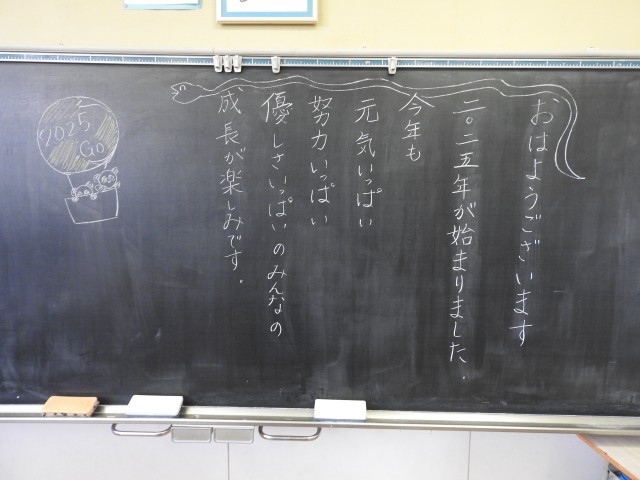 おはようございます
二〇二五年が始まりました.
今年も
元気いっぱい
努力いっぱい
優しさいっぱいのみんなの
成長が楽しみです.
2025
Go